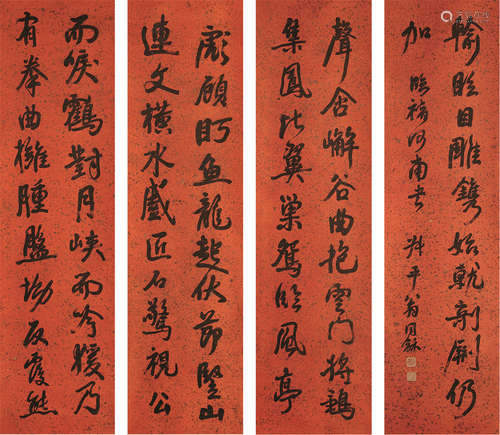 聲含嶰谷曲抱雲門將鶵
集鳳比翼巢鴛臨風亭
而唳鶴對月峽而吟猨乃
有拳曲擁腫盤坳反覆熊
彪顧盼魚龍起伏節豎山
連文橫水蹙匠石驚視公
輸眩目雕鐫始就剞劂仍
加 臨褚河南書 叔平翁同龢